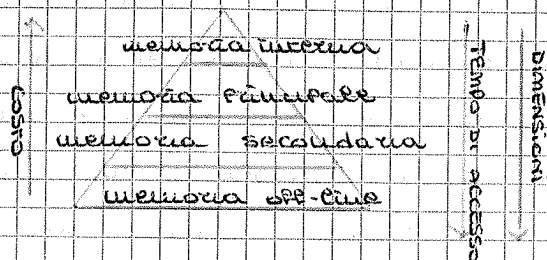 memoria interna
memoria principale
memoria secondaria
memoria off-line
COSTO
TEMPO DI ACCESSO
DIMENSIONI